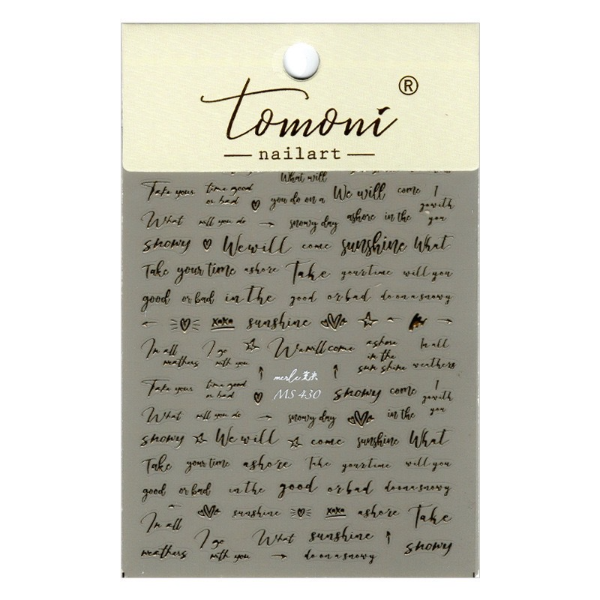 Tomoni ®
nailart
What will
Take your time good or bad you do on a We will come I go with you
What will you do → snowy day ashore in the you
snowy We will come sunshine What
Take your time ashore Take your time will you
good or bad in the good or bad do on a snowy
xoxo sunshine
In all weathers I go with you We will come ashore in the sun shine In all weathers
merle
MS 430
Take your time good or bad snowy come I go with you
What will you do → snowy day in the you
snowy We will come sunshine What
Take your time ashore Take your time will you
good or bad in the good or bad do on a snowy
In all sunshine xoxo ashore Take
weathers I go with you What sunshine → do on a snowy snowy